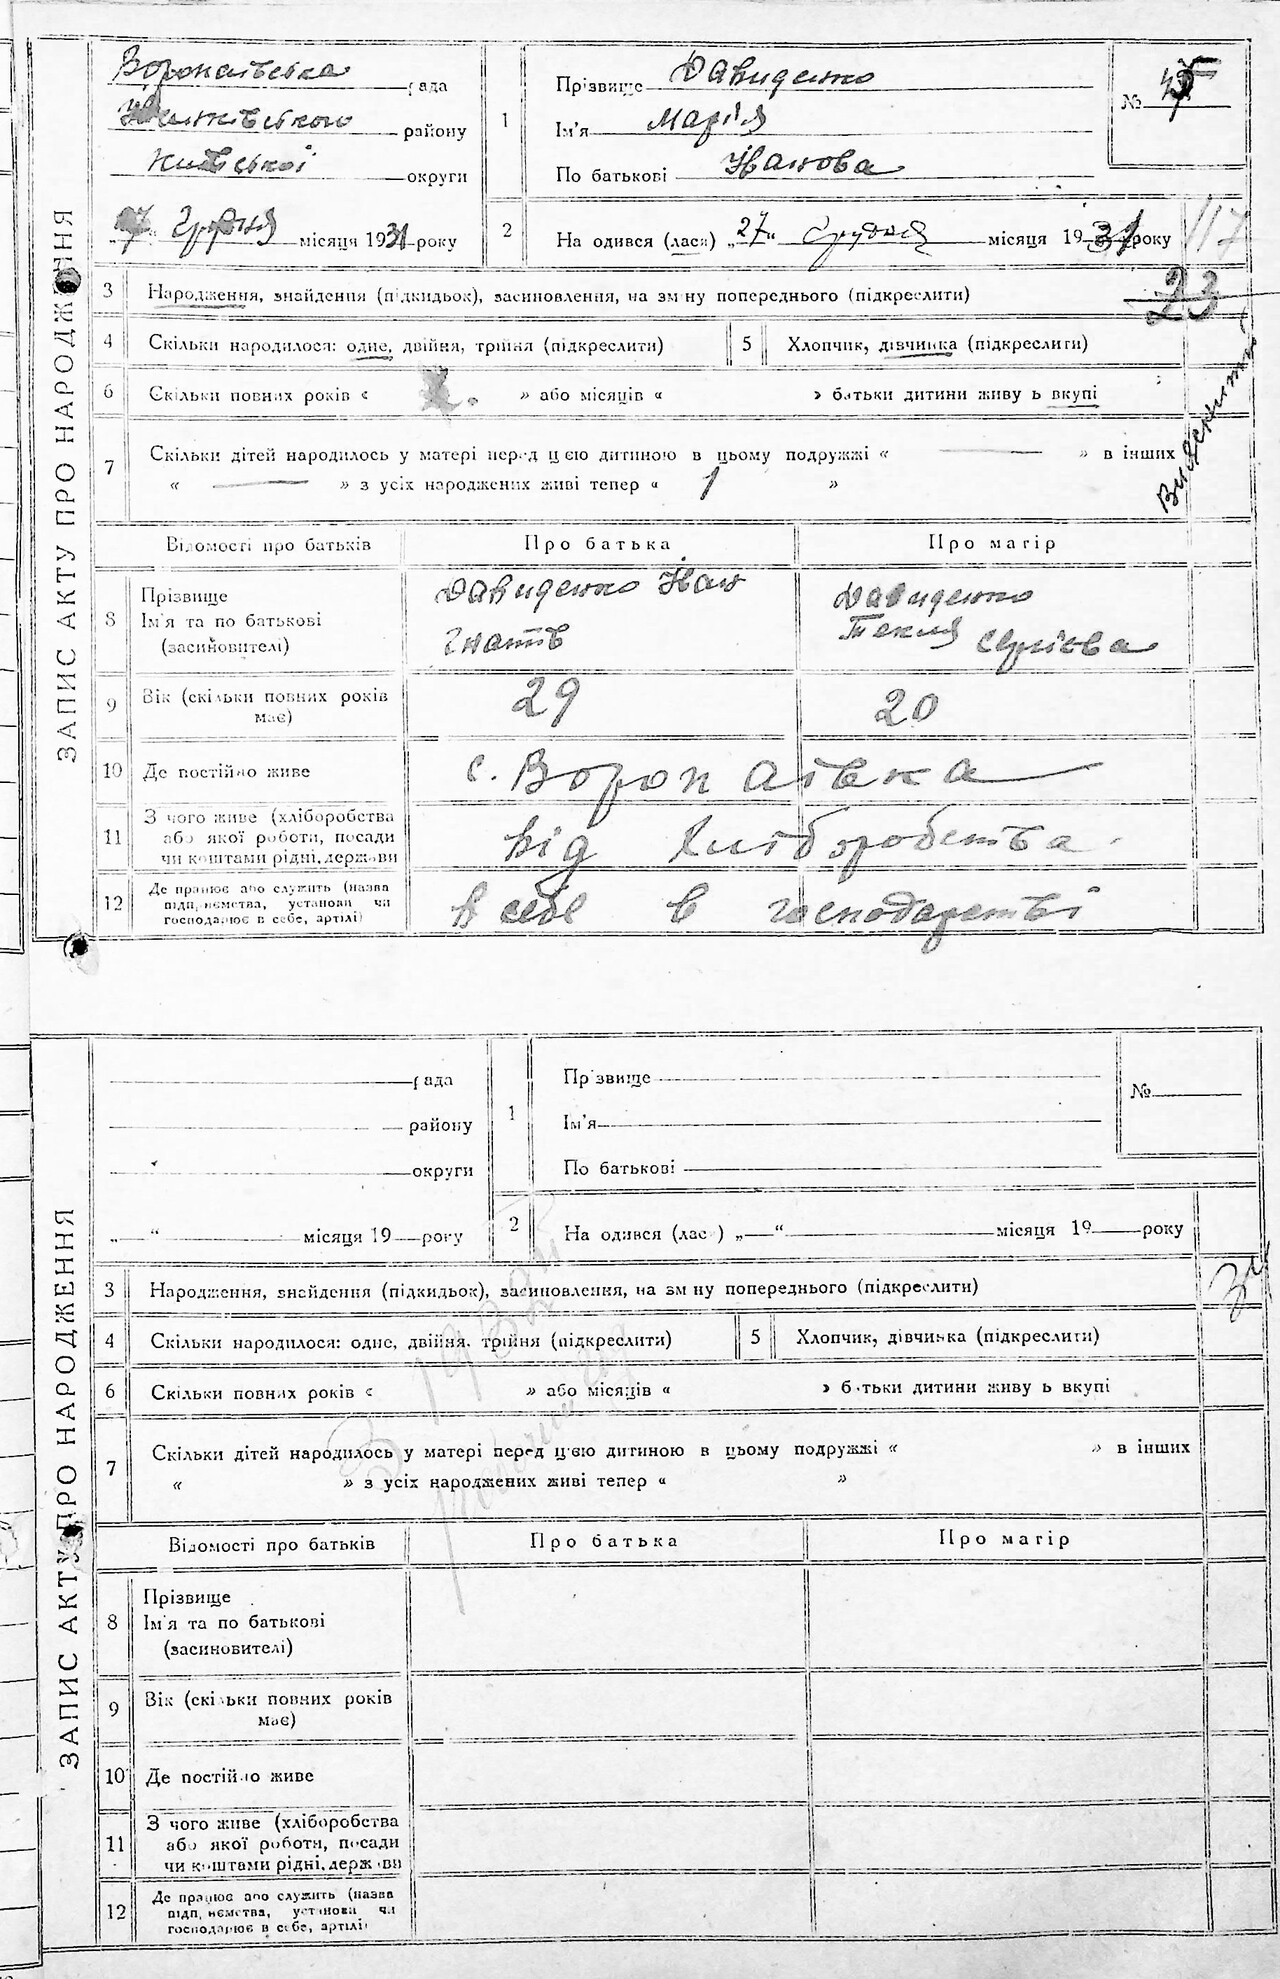 ЗАПИС АКТУ ПРО НАРОДЖЕННЯ
Воропаївська рада
району
Київської округи
27 Грудня місяця 1931 року
1
Прізвище Давиденко
Ім'я Марія
По батькові Іванова
№
2
На одився (лася) „27" Грудня місяця 1931 року
117
23
3 Народження, знайдення (підкидьок), засиновлення, на зм ну попереднього (підкреслити)
4 Скільки народилося: одне, двійня, трійня (підкреслити) 5 Хлопчик, дівчинка (підкреслити)
6 Скільки повних років « » або місяців « » батьки дитини живу ь вкупі
7 Скільки дітей народилось у матері перед цією дитиною в цьому подружжі « — » в інших
« — » з усіх народжених живі тепер « 1 »
Відомості про батьків Про батька Про матір
8 Прізвище Ім'я та по батькові (засиновителі)
Давиденко Іван Гнатів
Давиденко Текля Сергієва
9 Вік (скільки повних років має) 29 20
10 Де постійно живе с. Воропаївка
11 З чого живе (хліборобства або якої роботи, посади чи коштами рідні, держави від Хліборобства
12 Де працює або служить (назва підп, ємства, установи чи господарює в себе, артілі) в себе в господарстві
ЗАПИС АКТУ ПРО НАРОДЖЕННЯ
рада
району
округи
„ " місяця 19 року
1
Пр звище
Ім'я
По батькові
№
2
На одився (лас ) „ " місяця 19 року
3 Народження, знайдення (підкидьок), засиновлення, на зм ну попереднього (підкреслити)
4 Скільки народилося: одне, двійня, трійня (підкреслити) 5 Хлопчик, дівчинка (підкреслити)
6 Скільки повних років « » або місяців « » б тьки дитини живу ь вкупі
7 Скільки дітей народилось у матері перед цією дитиною в цьому подружжі « » в інших
« » з усіх народжених живі тепер « »
Відомості про батьків Про батька Про матір
8 Прізвище Ім'я та по батькові (засиновителі)
9 Вік (скільки повних років має)
10 Де постійно живе
11 З чого живе (хліборобства або якої роботи, посади чи коштами рідні, держави
12 Де працює або служить (назва підп, ємства, установи чи господарює в себе, артілі)